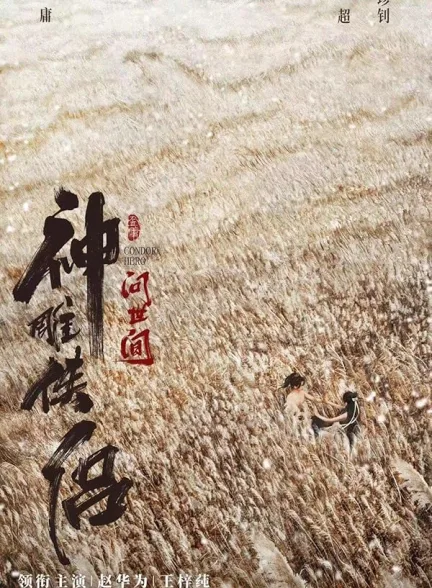 庸
超
钊
神雕侠侣
金庸
CONDOR
HERO
问世间
领衔主演|赵华为|王梓莼